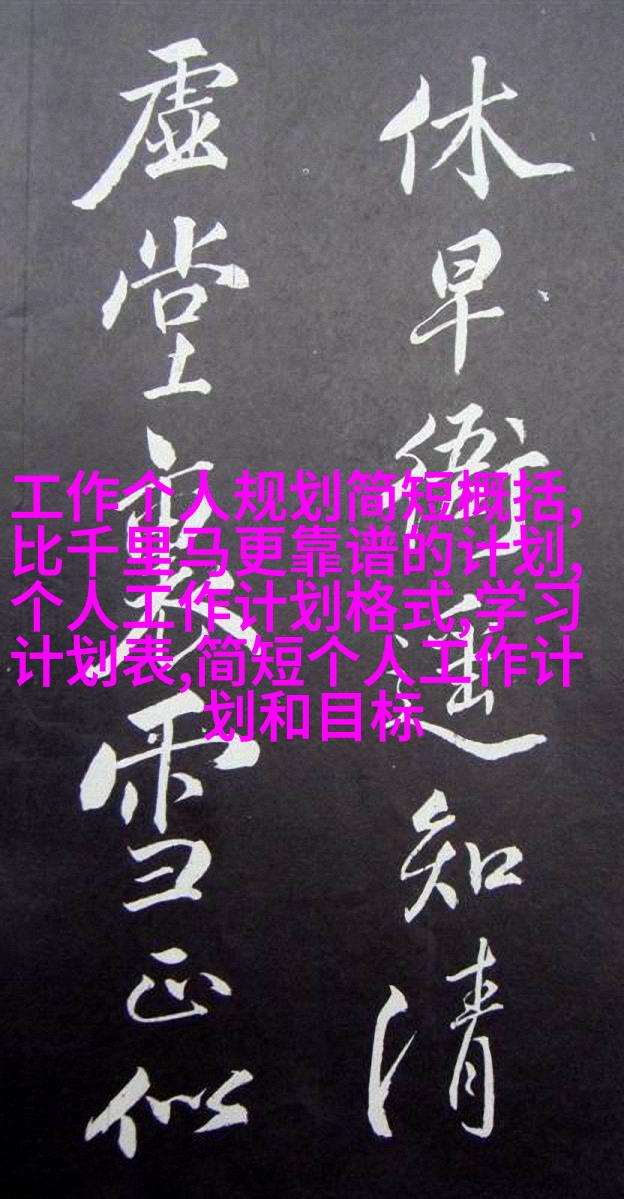 休早衙遥知清
虚堂雪正似
工作个人规划简短概括,
比千里马更靠谱的计划,
个人工作计划格式,学习
计划表,简短个人工作计
划和目标